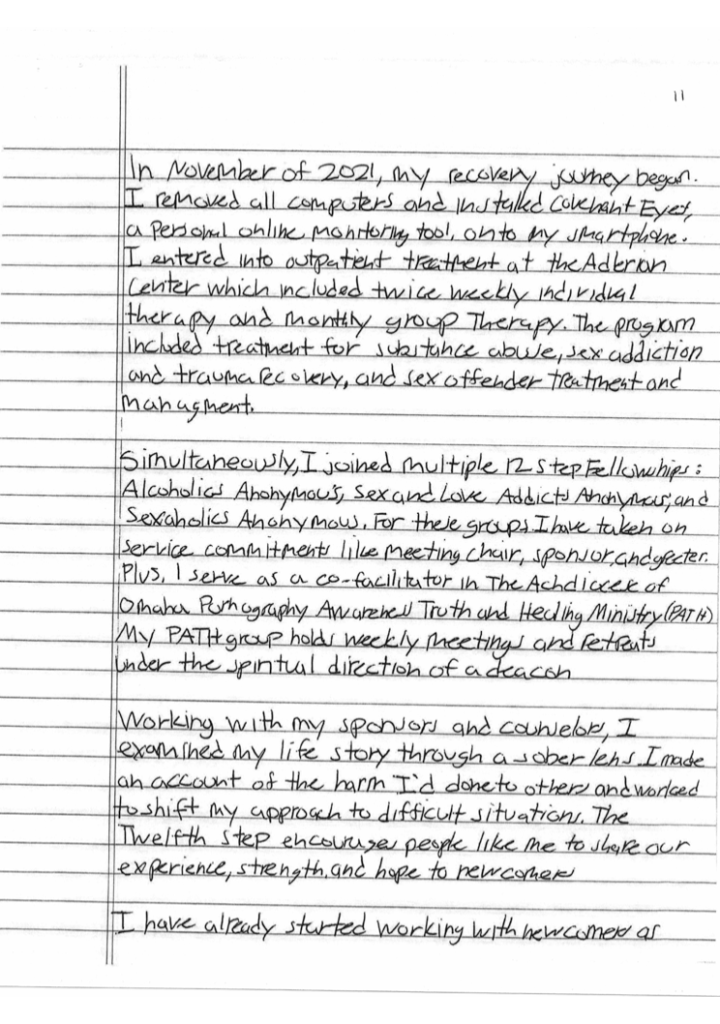 11
In November of 2021, my recovery journey began.
I removed all computers and installed Covenant Eyes,
a personal online monitoring tool, onto my smartphone.
I entered into outpatient treatment at the Adkrian
Center which included twice weekly individual
therapy and monthly group Therapy. The program
included treatment for substance abuse, sex addiction
and trauma recovery, and sex offender treatment and
managment.
Simultaneously, I joined multiple 12 step Fellowships:
Alcoholics Anonymous, Sex and Love Addicts Anonymous, and
Sexaholics Anonymous. For these groups I have taken on
service commitments like meeting chair, sponsor, and greeter.
Plus, I serve as a co-facilitator in The of
Omaha Pornography Awareness Truth and Healing Ministry (PATH)
My PATH group holds weekly meetings and retreats
under the spiritual direction of a deacon
Working with my sponsors and counselors, I
examined my life story through a sober lens. I made
an account of the harm I'd done to others and worked
to shift my approach to difficult situations. The
Twelfth step encourages people like me to share our
experience, strength, and hope to newcomers
I have already started working with newcomers as